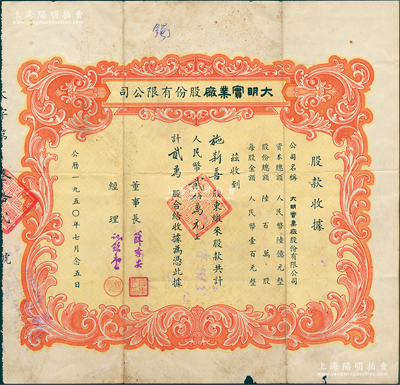 上海陽明拍賣
大明實業廠股份有限公司
股款收據
公司名稱 大明實業廠股份有限公司
資本總額 人民幣陸億元整
股份總額 陸百萬股
每股金額 人民幣壹百元整
茲收到
施新善 股東繳來股款共計
人民幣貳佰萬元正
計貳萬 股合給收據為憑此據
董事長
經理
公曆一九五〇年七月念五日
號
上海陽明拍賣